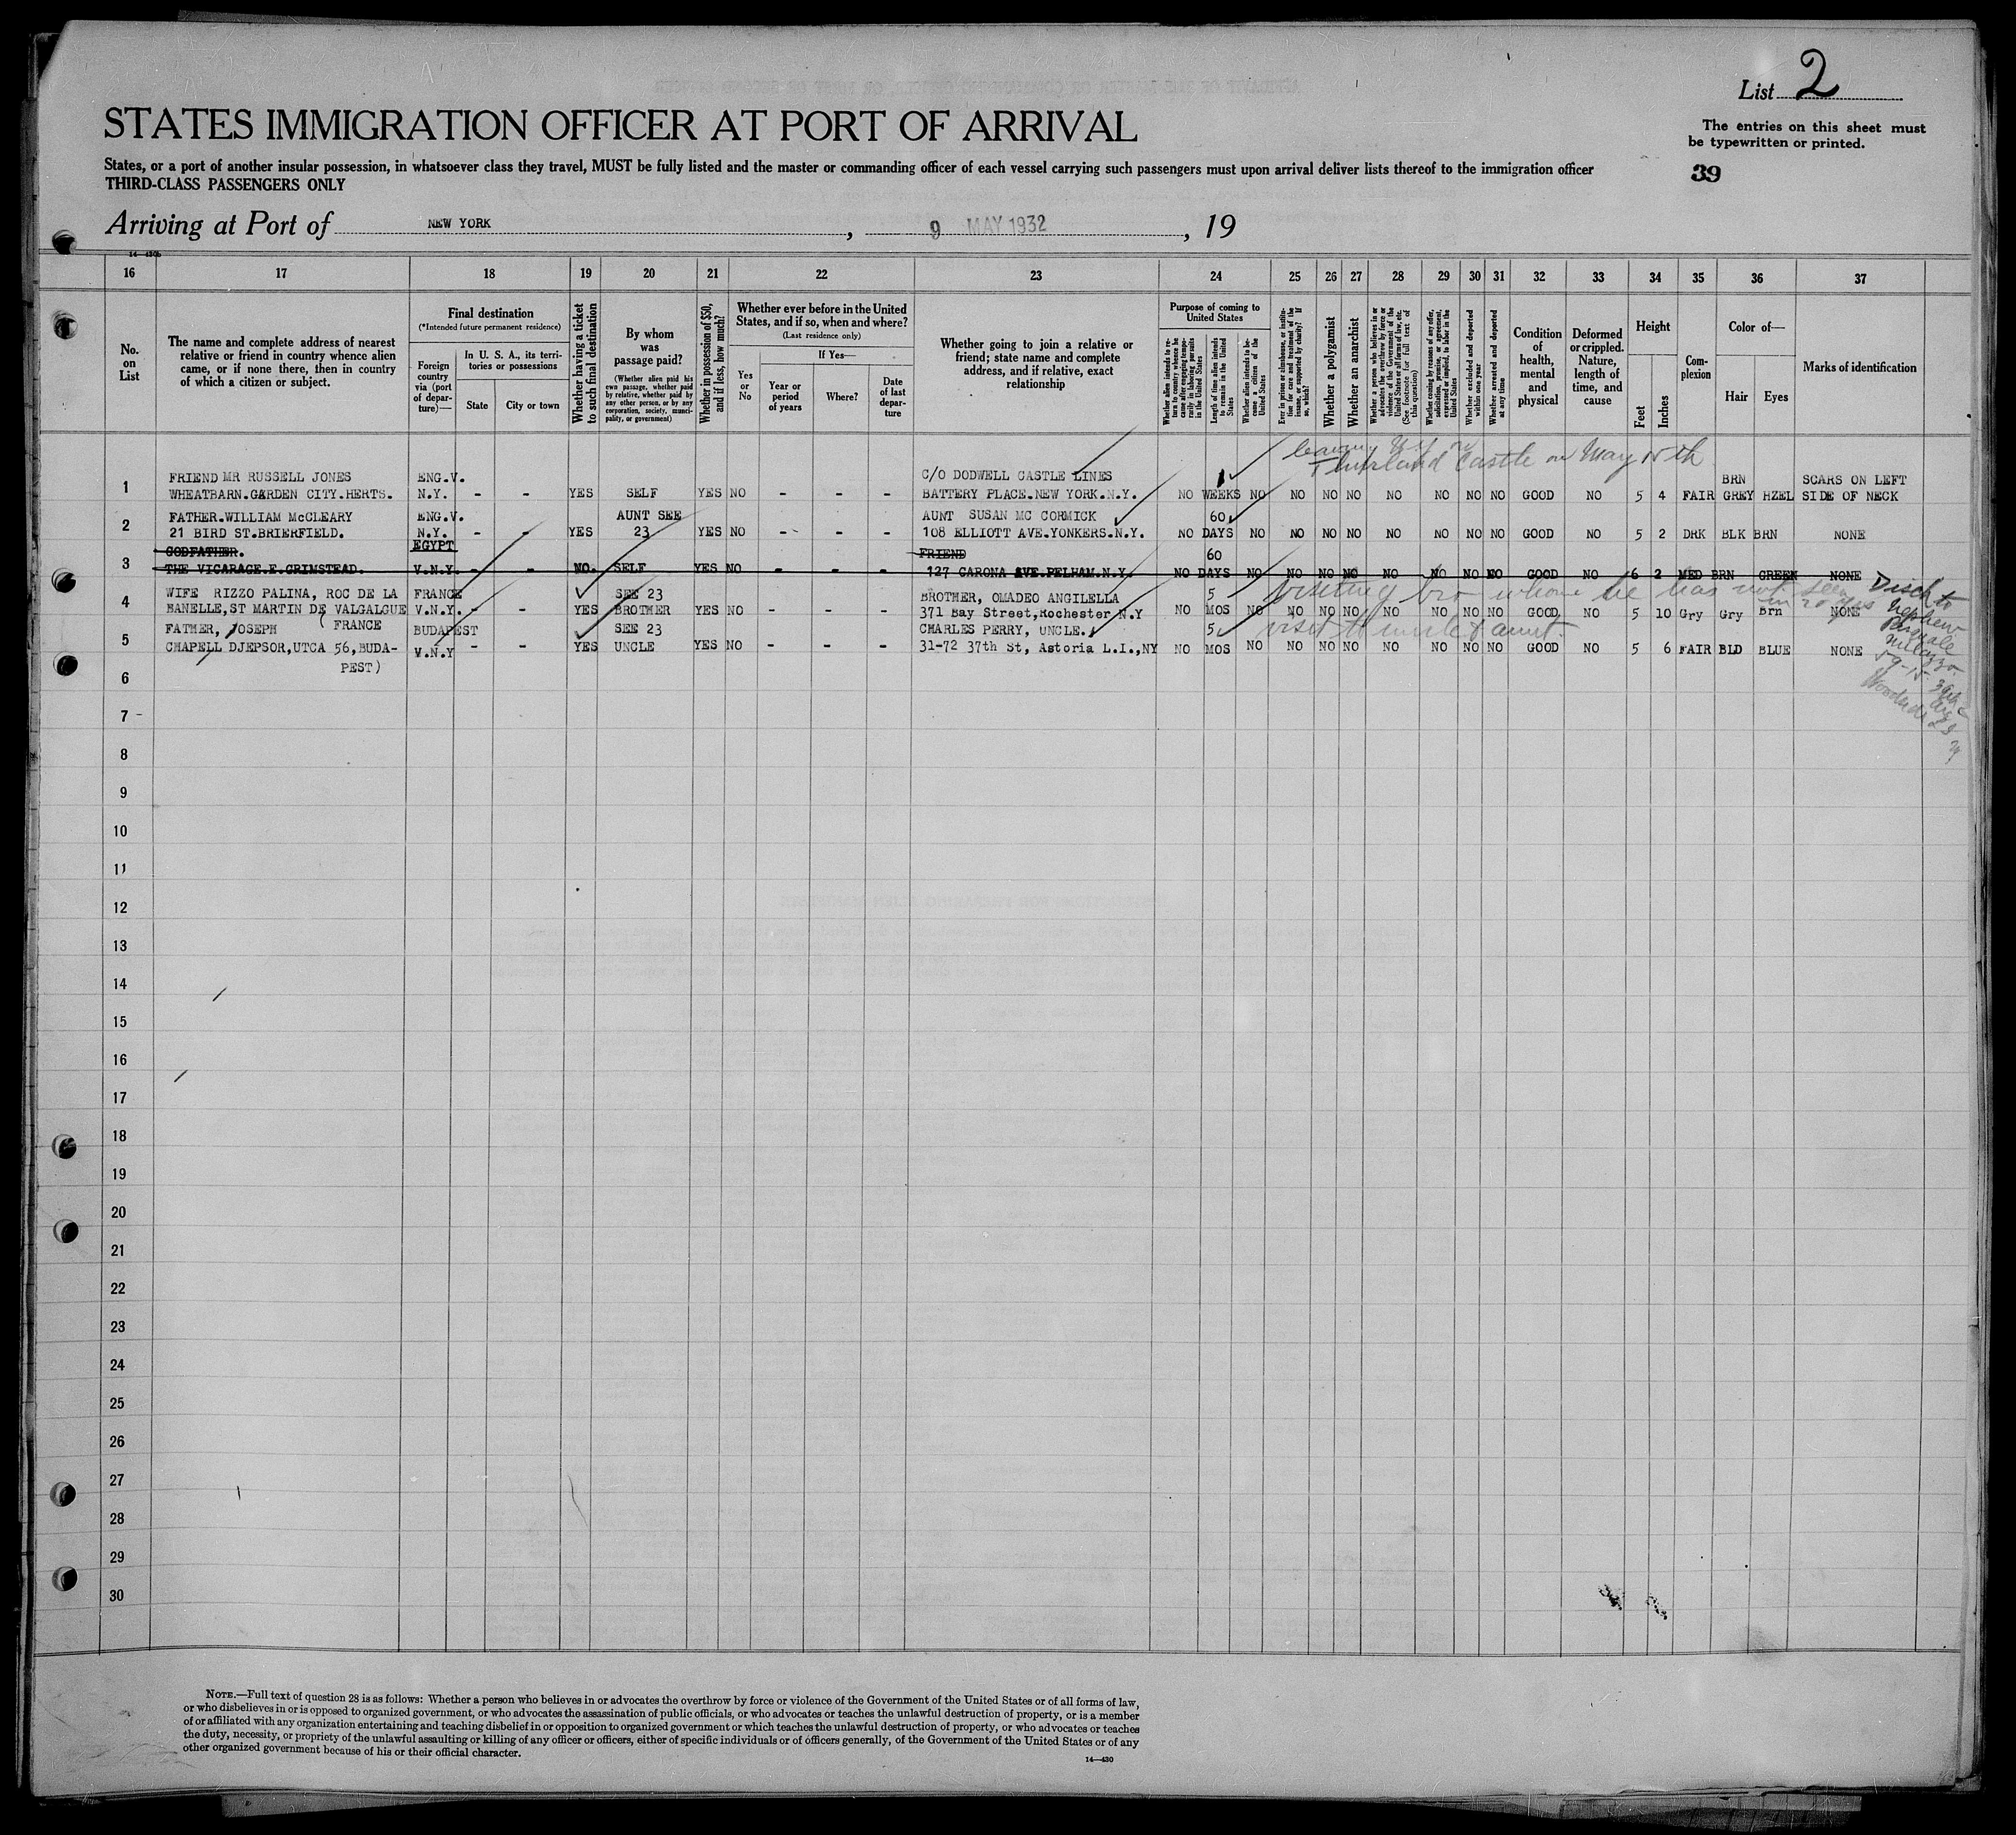 List 2
STATES IMMIGRATION OFFICER AT PORT OF ARRIVAL
The entries on this sheet must
be typewritten or printed.
States, or a port of another insular possession, in whatsoever class they travel, MUST be fully listed and the master or commanding officer of each vessel carrying such passengers must upon arrival deliver lists thereof to the immigration officer
THIRD-CLASS PASSENGERS ONLY
39
Arriving at Port of NEW YORK, 9 MAY 1932, 19
16 17 18 19 20 21 22 23 24 25 26 27 28 29 30 31 32 33 34 35 36 37
No. on List
The name and complete address of nearest
relative or friend in country whence alien
came, or if none there, then in country
of which a citizen or subject.
Final destination
(*Intended future permanent residence)
Foreign country via (port of departure)—
In U. S. A., its territories or possessions
State
City or town
Whether having a ticket to such final destination
By whom was passage paid?
(Whether alien paid his own passage, whether paid by relative, whether paid by any other person, or by any corporation, society, municipality, or government)
Whether in possession of $50, and if less, how much?
Whether ever before in the United
States, and if so, when and where?
(Last residence only)
Yes or No
If Yes—
Year or period of years
Where?
Date of last departure
Whether going to join a relative or
friend; state name and complete
address, and if relative, exact
relationship
Purpose of coming to
United States
Whether alien intends to return to country whence he came after engaging temporarily in laboring pursuits in the United States
Length of time alien intends to remain in the United States
Whether alien intends to become a citizen of the United States
Ever in prison or almshouse, or institution for care and treatment of the insane, or supported by charity? If so, which?
Whether a polygamist
Whether an anarchist
Whether a person who believes in or advocates the overthrow by force or violence of the Government of the United States or all forms of law, etc. (See footnote for full text of this question)
Whether coming by reasons of any offer, solicitation, promise, or agreement, expressed or implied, to labor in the United States
Whether excluded and deported within one year
Whether arrested and deported at any time
Condition of health, mental and physical
Deformed or crippled. Nature, length of time, and cause
Height
Feet
Inches
Complexion
Color of—
Hair
Eyes
Marks of identification
leaving
Castle on May 15th
FRIEND MR RUSSELL JONES ENG.V. C/O DODWELL CASTLE LINES 1 BRN SCARS ON LEFT
1 WHEATBARN.GARDEN CITY.HERTS. N.Y. - - YES SELF YES NO - - - BATTERY PLACE.NEW YORK.N.Y. NO WEEKS NO NO NO NO NO NO NO NO GOOD NO 5 4 FAIR GREY HZEL SIDE OF NECK
FATHER.WILLIAM McCLEARY ENG.V. AUNT SEE AUNT SUSAN MC CORMICK 60
2 21 BIRD ST.BRIERFIELD. N.Y. - - YES 23 YES NO - - - 108 ELLIOTT AVE.YONKERS.N.Y. NO DAYS NO NO NO NO NO NO NO NO GOOD NO 5 2 DRK BLK BRN NONE
GODFATHER. EGYPT FRIEND 60
3 THE VICARAGE.E.GRIMSTEAD. V.N.Y. - - NO. SELF YES NO - - - 127 CARONA AVE.PELHAM.N.Y. NO DAYS NO NO NO NO NO NO NO NO GOOD NO 6 2 MED BRN GREEN NONE
visiting bro whom he has not seen in 20 yrs
WIFE RIZZO PALINA, ROC DE LA FRANCE SEE 23 BROTHER, OMADEO ANGILELLA 5
4 BANELLE,ST MARTIN DE VALGALGUE V.N.Y. - - YES BROTHER YES NO - - - 371 Bay Street,Rochester N.Y NO MOS NO NO NO NO NO NO NO NO GOOD NO 5 10 Gry Gry Brn NONE
FRANCE
visit to uncle & aunt.
FATHER, JOSEPH BUDAPEST SEE 23 CHARLES PERRY, UNCLE. 5
5 CHAPELL DJEPSOR,UTCA 56,BUDA- V.N.Y - - YES UNCLE YES NO - - - 31-72 37th St, Astoria L.I.,NY NO MOS NO NO NO NO NO NO NO NO GOOD NO 5 6 FAIR BLD BLUE NONE
PEST)
Disch to
nephew
Pasquale
59-15 39th
Ave
Woodside
6
7
8
9
10
11
12
13
14
15
16
17
18
19
20
21
22
23
24
25
26
27
28
29
30
NOTE.—Full text of question 28 is as follows: Whether a person who believes in or advocates the overthrow by force or violence of the Government of the United States or of all forms of law,
or who disbelieves in or is opposed to organized government, or who advocates the assassination of public officials, or who advocates or teaches the unlawful destruction of property, or is a member
of or affiliated with any organization entertaining and teaching disbelief in or opposition to organized government or which teaches the unlawful destruction of property, or who advocates or teaches
the duty, necessity, or propriety of the unlawful assaulting or killing of any officer or officers, either of specific individuals or of officers generally, of the Government of the United States or of any
other organized government because of his or their official character.
14—430